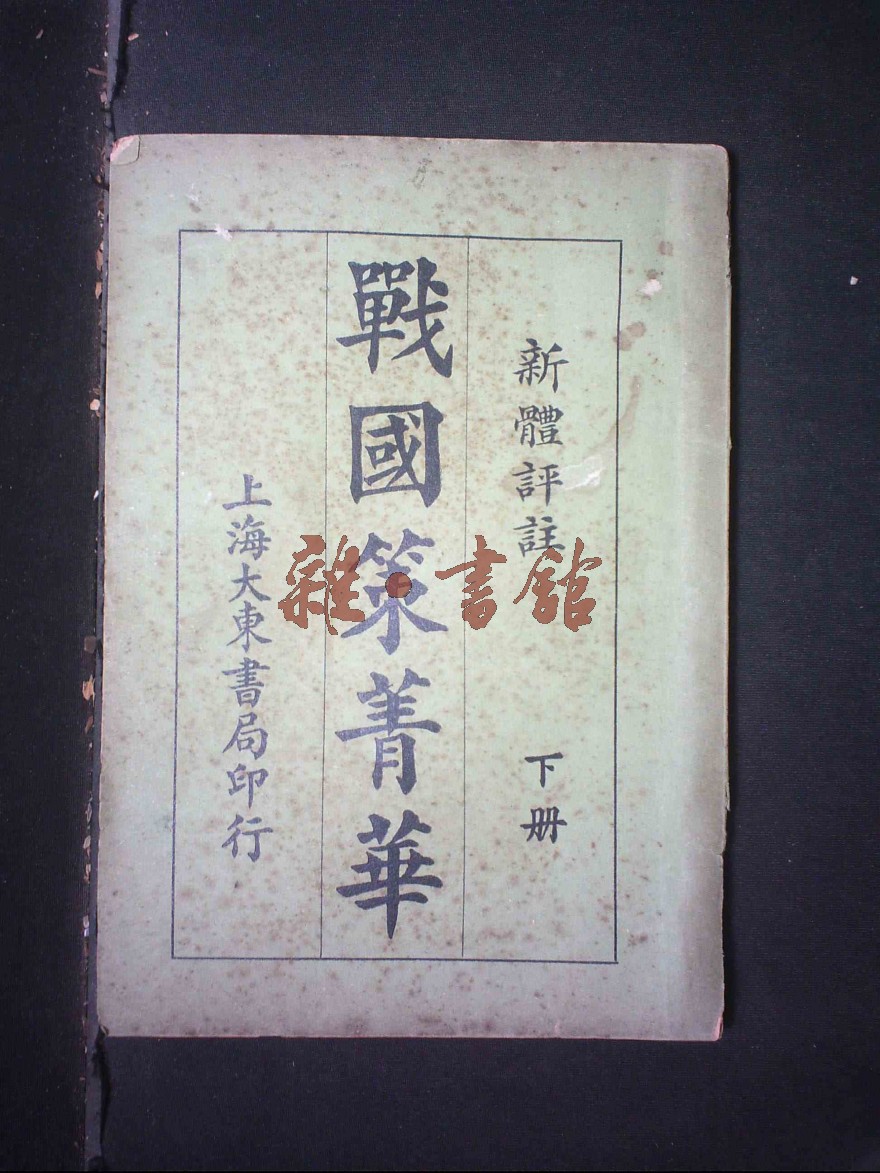 新體評註
下册
戰國策菁華
上海大東書局印行
雜·書館